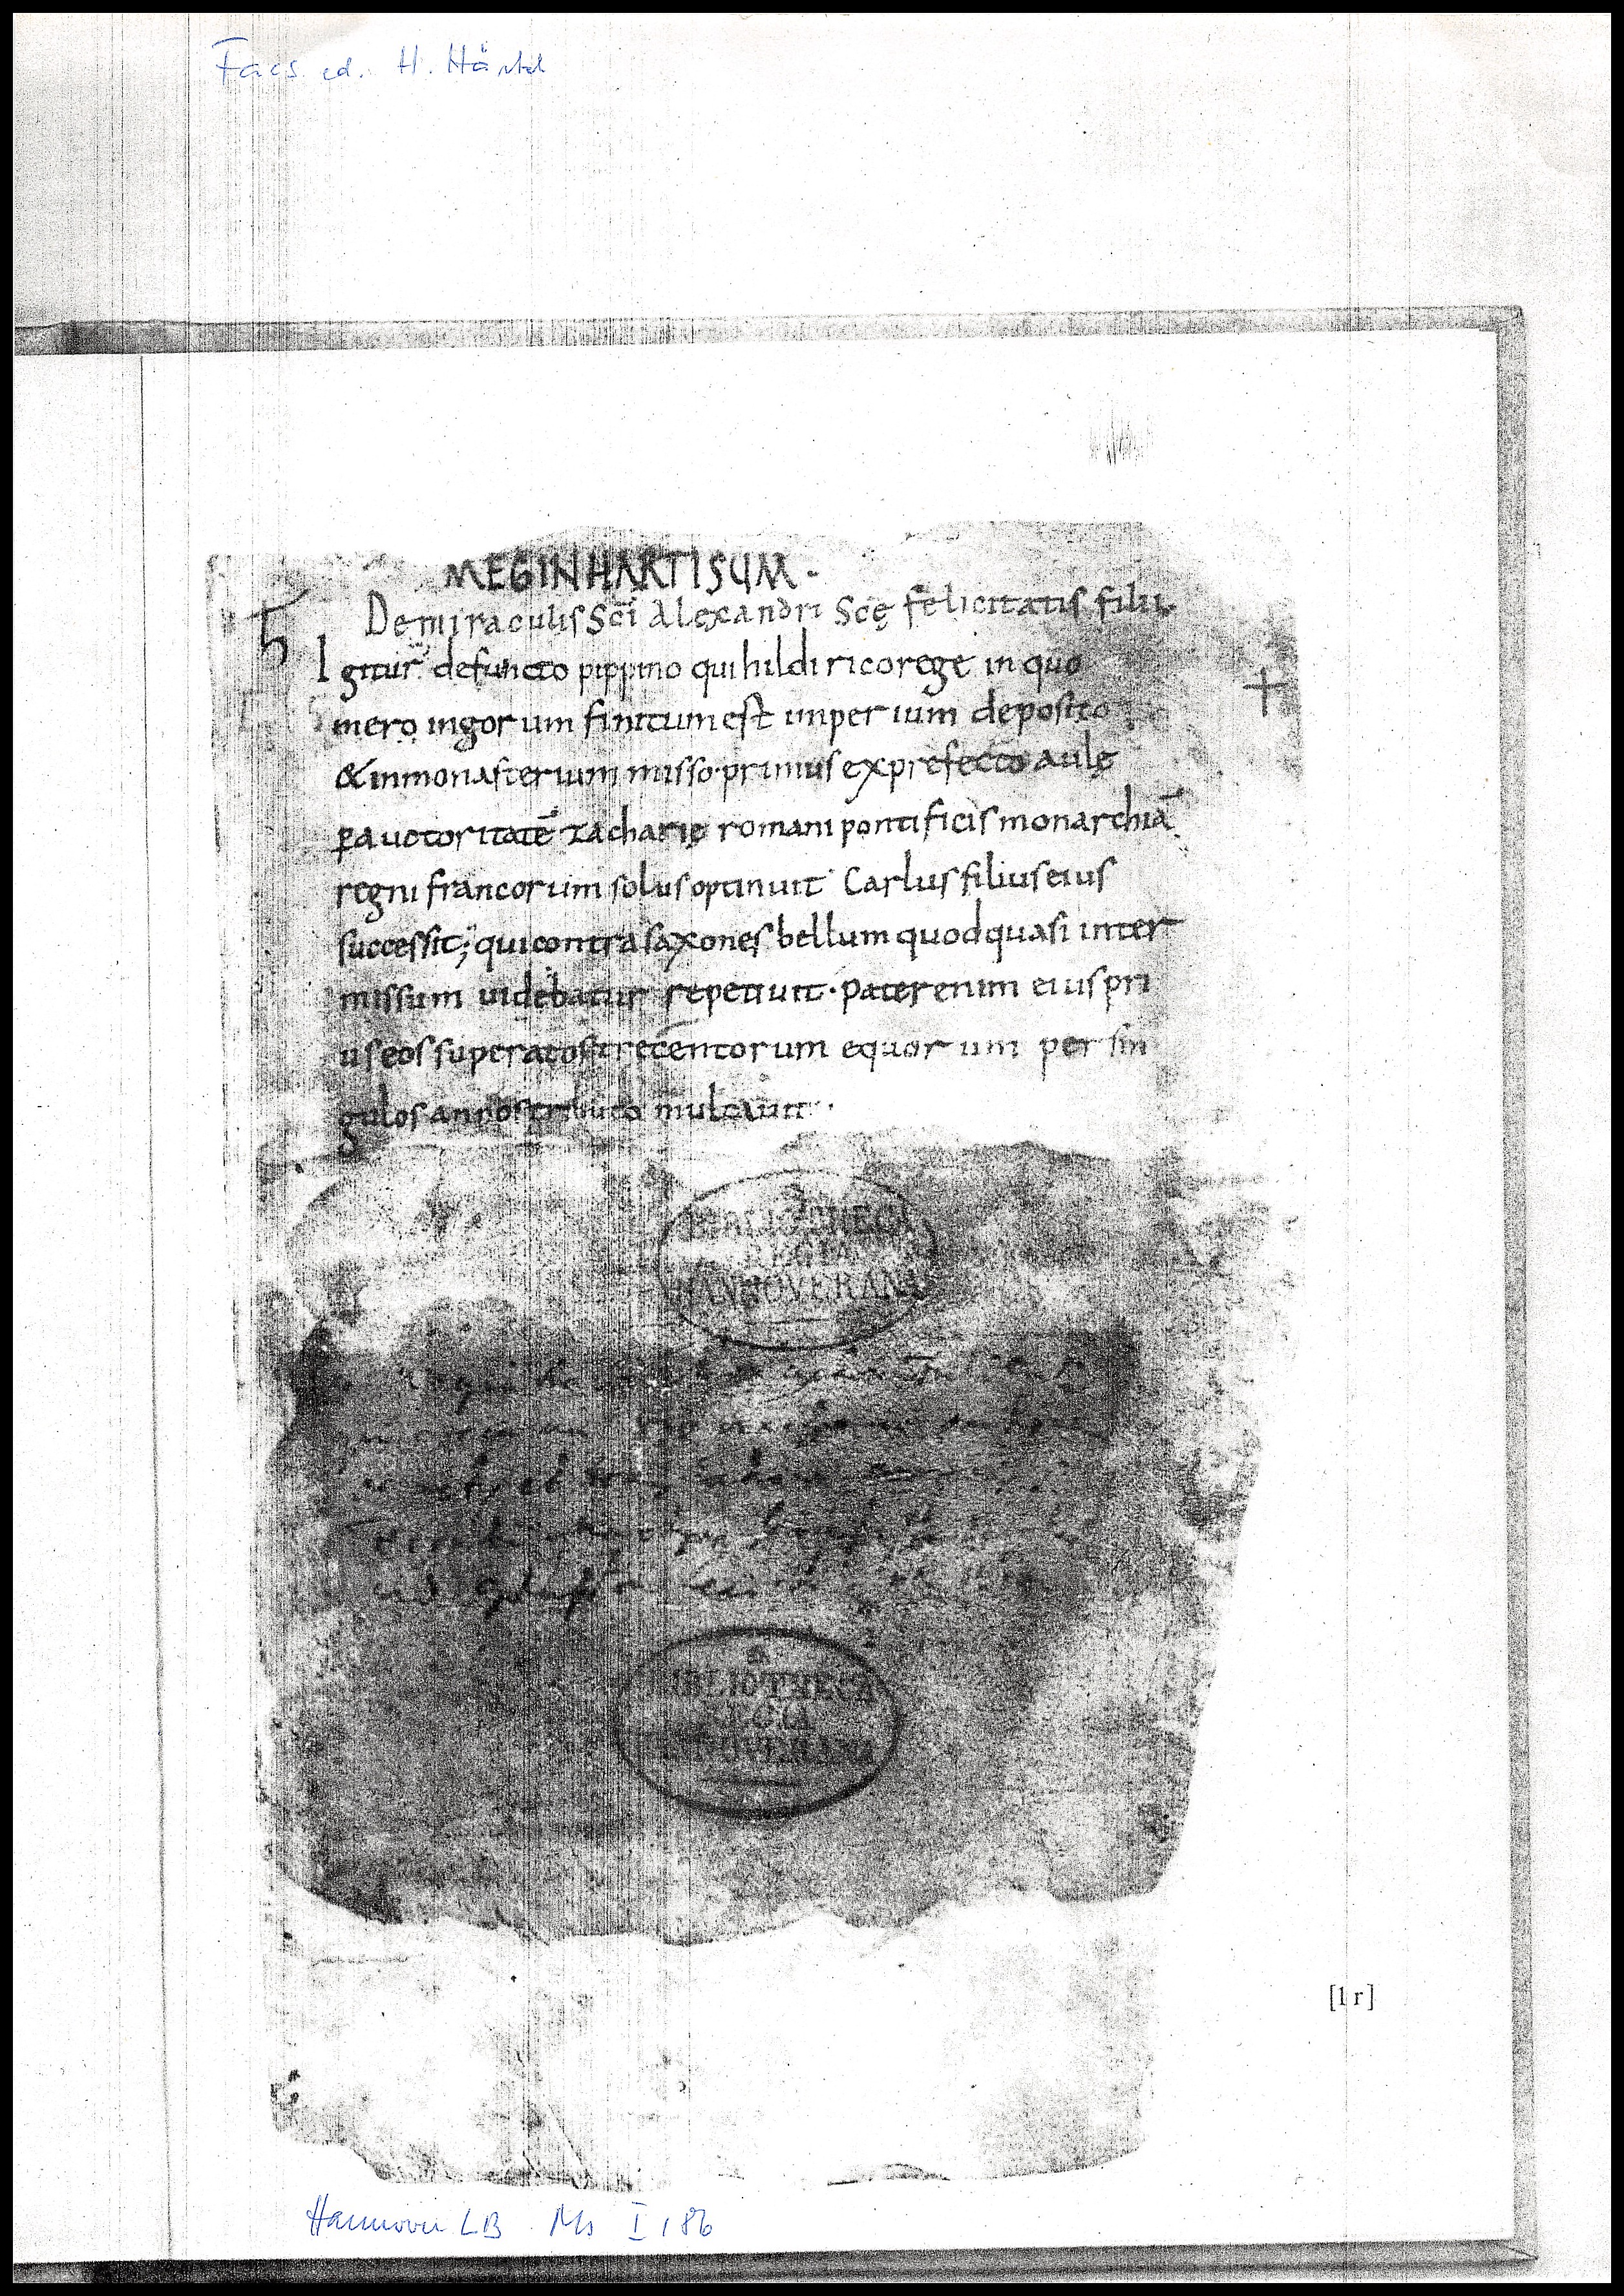 Facs. ed. H. Härtel
MEGINHARTISUM.
De miraculis Sc̄i Alexandri Scę felicitatis filii.
h
Igitur defuncto pippino qui hildirico rege in quo
mero ingorum finitum est imperium deposito
& in monasterium misso· primus ex prefecto aulę
ꝑ auctoritatē zacharię romani pontificis monarchiā
regni francorum solus optinuit· Carlus filius eius
successit; qui contra saxones bellum quod quasi inter
missum uidebatur repetiuit· pater enim eius pri
us eos superatos trecentorum equorum per sin
gulos annos tributo multauit·
BIBLIOTHECA
REGIA
HANNOVERANA
BIBLIOTHECA
REGIA
HANNOVERANA
[1r]
Hannover LB Ms I 186